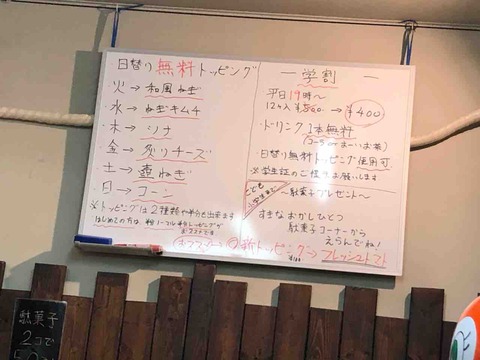 日替り無料トッピング
火→和風ねぎ
水→ねぎキムチ
木→ツナ
金→炙りチーズ
土→塩ねぎ
日→コーン
※トッピングは2種類や半分も出来ます
はじめての方は、半分ノーマル半分トッピングが
オススメです
ー学割ー
平日19時〜
12ヶ入 ¥500→¥400
・ドリンク1本無料
(コーラorまーいお茶)
・日替り無料トッピング使用可
※学生証のご提示お願いします
こども
小学生まで
〜駄菓子プレゼント〜
すきなおかしひとつ
駄菓子コーナーから
えらんでね!
新トッピング→フレッシュトマト
駄菓子
2コで